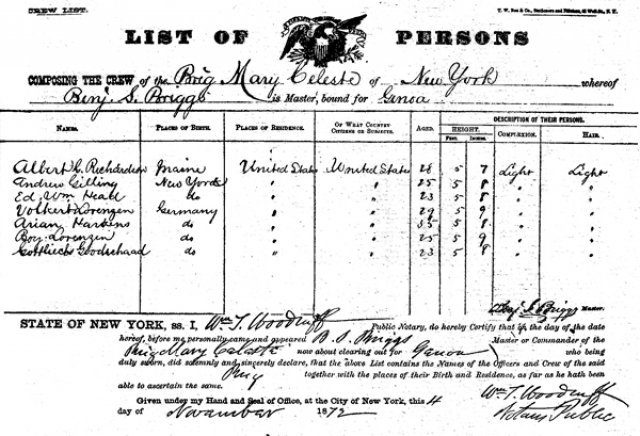 CREW LIST.
LIST OF PERSONS
COMPOSING THE CREW of the Brig Mary Celeste of New York whereof
Benj. S. Briggs is Master, bound for Genoa
NAMES. PLACES OF BIRTH. PLACES OF RESIDENCE. OF WHAT COUNTRY CITIZENS OR SUBJECTS. AGED. HEIGHT. FEET. INCHES. DESCRIPTION OF THEIR PERSONS. COMPLEXION. HAIR.
Albert G. Richardson Maine United States United States 28 5 7 Light Light
Andrew Gilling New York " " 25 5 8 " "
Ed. Wm Head do " " 23 5 8 " "
Volkert Lorenzen Germany " " 29 5 9 " "
Arian Harkens do " " 35 5 8 " "
Boy Lorenzen do " " 25 5 9 " "
Gottlieb Goodschaad do " " 23 5 8 " "
Benj S Briggs Master.
STATE OF NEW YORK, ss. I, Wm T. Woodruff Public Notary, do hereby Certify that on the day of the date
hereof, before me personally came and appeared B. S. Briggs Master or Commander of the
Brig Mary Celeste now about clearing out for Genoa who being
duly sworn, did solemnly and sincerely declare, that the above List contains the Names of the Officers and Crew of the said
Brig together with the places of their Birth and Residence, as far as he hath been
able to ascertain the same.
Given under my Hand and Seal of Office, at the City of New York, this 4
day of November 1872
Wm T. Woodruff
Notary Public